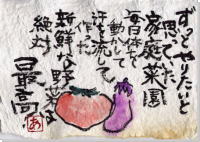 ずっとやりたいと
思ってた
家庭菜園
毎日体を
動かして
汗を流して
作った
新鮮な野菜は
絶対
最高
あ